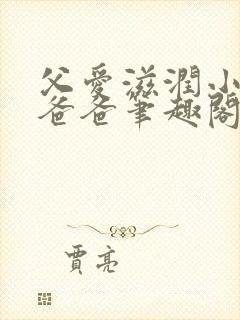 父愛滋潤小
爸爸筆趣閣
賈亮